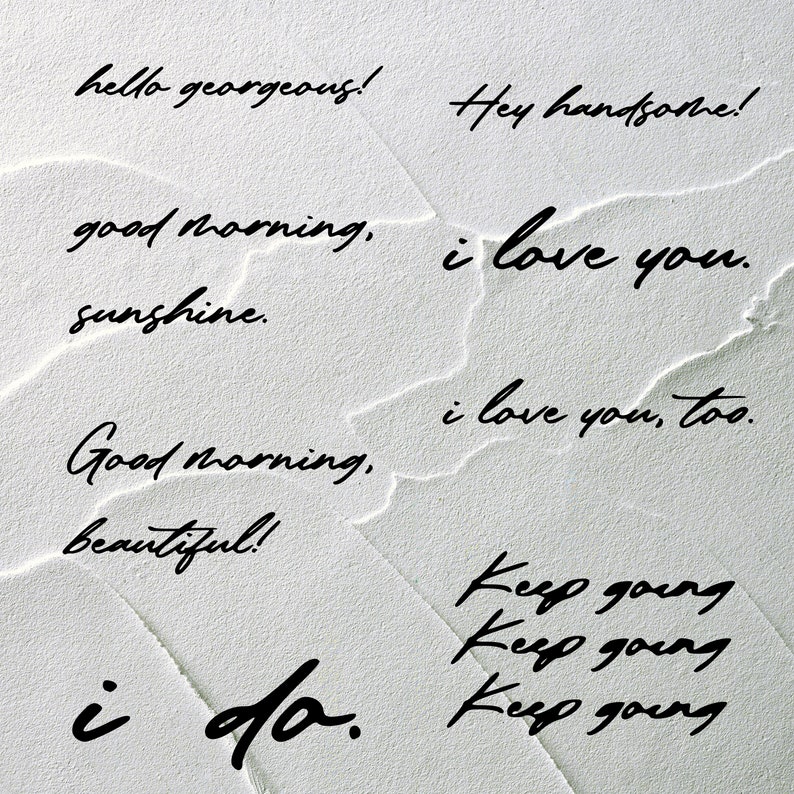 hello georgeous!
good morning,
sunshine.
Good morning,
beautiful!
i do.
Hey handsome!
i love you.
i love you, too.
Keep going
Keep going
Keep going